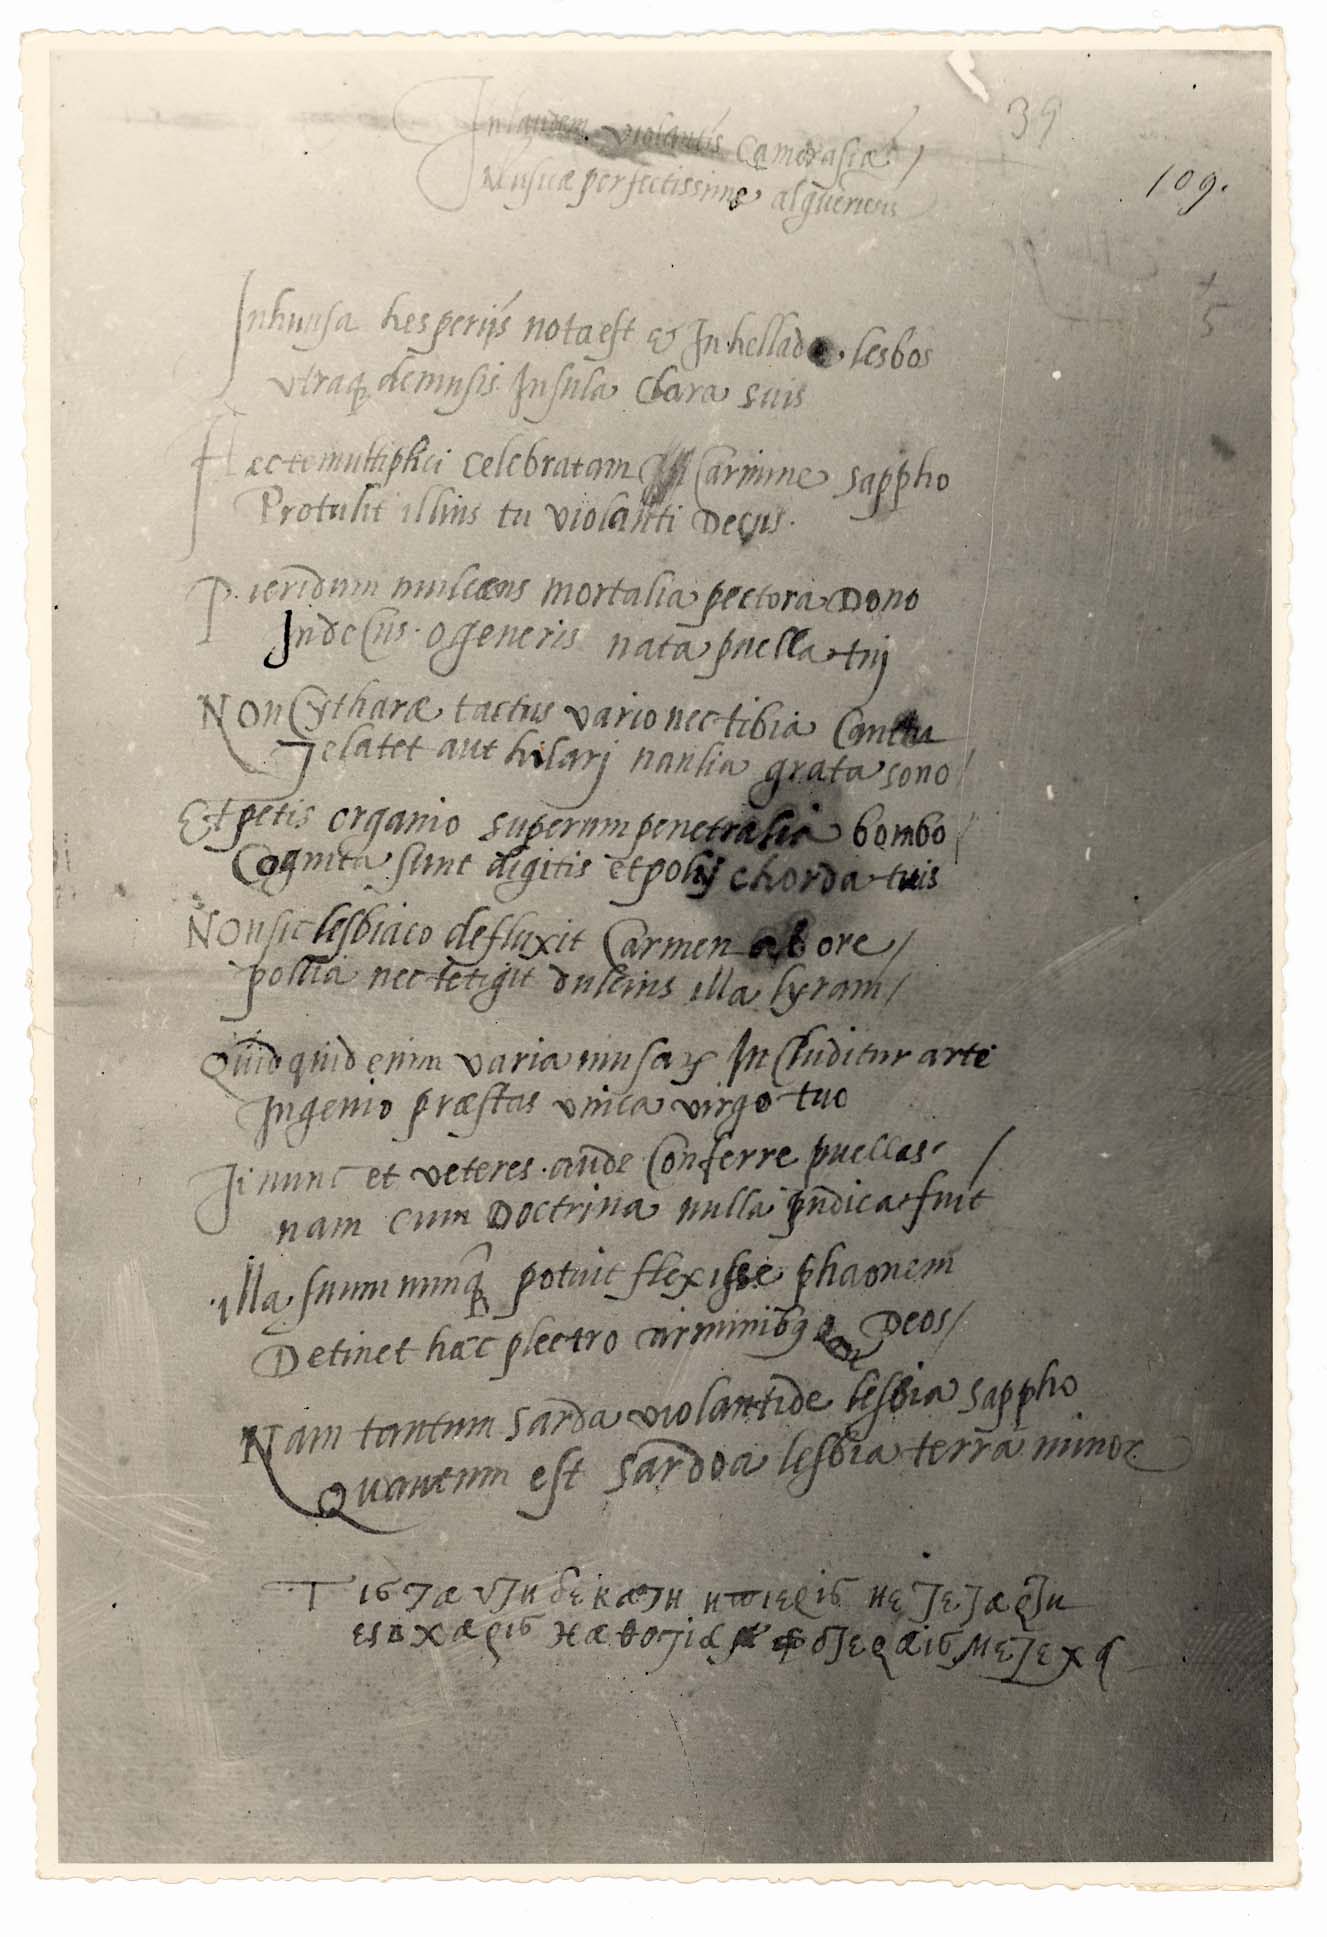 In laudem violantis Camerasiæ /
Musicæ perfectissime algueriens
39
109.
5
Inhuusa hesperijs nota est & In hellade. lesbos
vtraq demusis Insula Clara suis
Hec te multiplici celebratam Carmine sappho
Protulit illius tu violanti Decus.
Pieridum mulcens mortalia pectora Dono
In decus. o generis nata puella tuj
Non Cytharæ tactus vario nec tibia Cantu
Te latet aut hilarj naulia grata sono /
Et petis organio superum penetralia bombo /
Cognita sunt digitis et polij chorda tuis
Non sic lesbiaco defluxit Carmen ab ore /
pollia nec tetigit dulcius illa lyram /
Quidquid enim varia musaꝝ In Cluditur arte
Ingenio præstas vnica virgo tuo
Ii nunc et veteres. aude Conferre puellas. /
nam cum Doctrina nulla pudica fuit
illa suum nunq potuit flexisse phaonem
Detinet hæc plectro Deos /
Nam tantum sarda violantide lesbia sappho
Quantum est sardoa lesbia terra minor